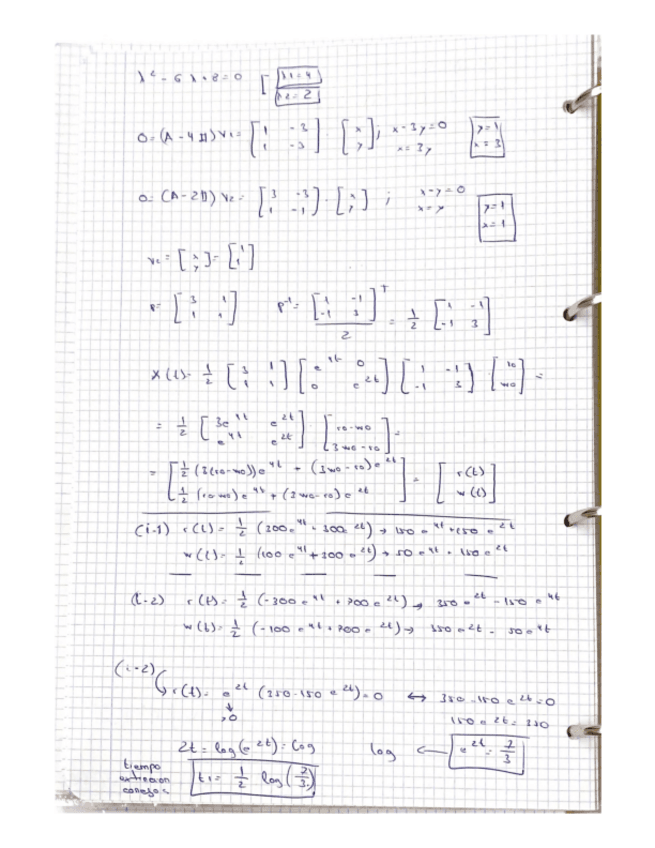 λ² - 6λ + 8 = 0 [ λ1 = 4
λ2 = 2
0 = (A - 4𝟙) v1 = [1 -3; 1 -3] · [x; y] ; x - 3y = 0 y = 1
x = 3y x = 3
0 = (A - 2𝟙) v2 = [3 -3; 1 -1] · [x; y] ; x - y = 0 y = 1
x = y x = 1
v2 = [x; y] = [1; 1]
P = [3 1; 1 1] P⁻¹ = [1 -1; -1 3]ᵀ / 2 = 1/2 [1 -1; -1 3]
X(t) = 1/2 [3 1; 1 1] [e^4t 0; 0 e^2t] [1 -1; -1 3] · [r0; w0] =
= 1/2 [3e^4t e^2t; e^4t e^2t] · [r0 - w0; 3w0 - r0] =
= [1/2 (3(r0-w0))e^4t + (3w0-r0)e^2t; 1/2 (r0-w0)e^4t + (3w0-r0)e^2t] = [r(t); w(t)]
(i-1) r(t) = 1/2 (300e^4t + 300e^2t) → 150e^4t + 150e^2t
w(t) = 1/2 (100e^4t + 300e^2t) → 50e^4t + 150e^2t
(i-2) r(t) = 1/2 (-300e^4t + 700e^2t) → 350e^2t - 150e^4t
w(t) = 1/2 (-100e^4t + 700e^2t) → 350e^2t - 50e^4t
(i-2)
r(t) = e^2t (350 - 150e^2t) = 0 ↔ 350 - 150e^2t = 0
>0 150e^2t = 350
2t = log(e^2t) = log log ← e^2t = 7/3
tiempo
extinción
conejos: t1 = 1/2 log(7/3)